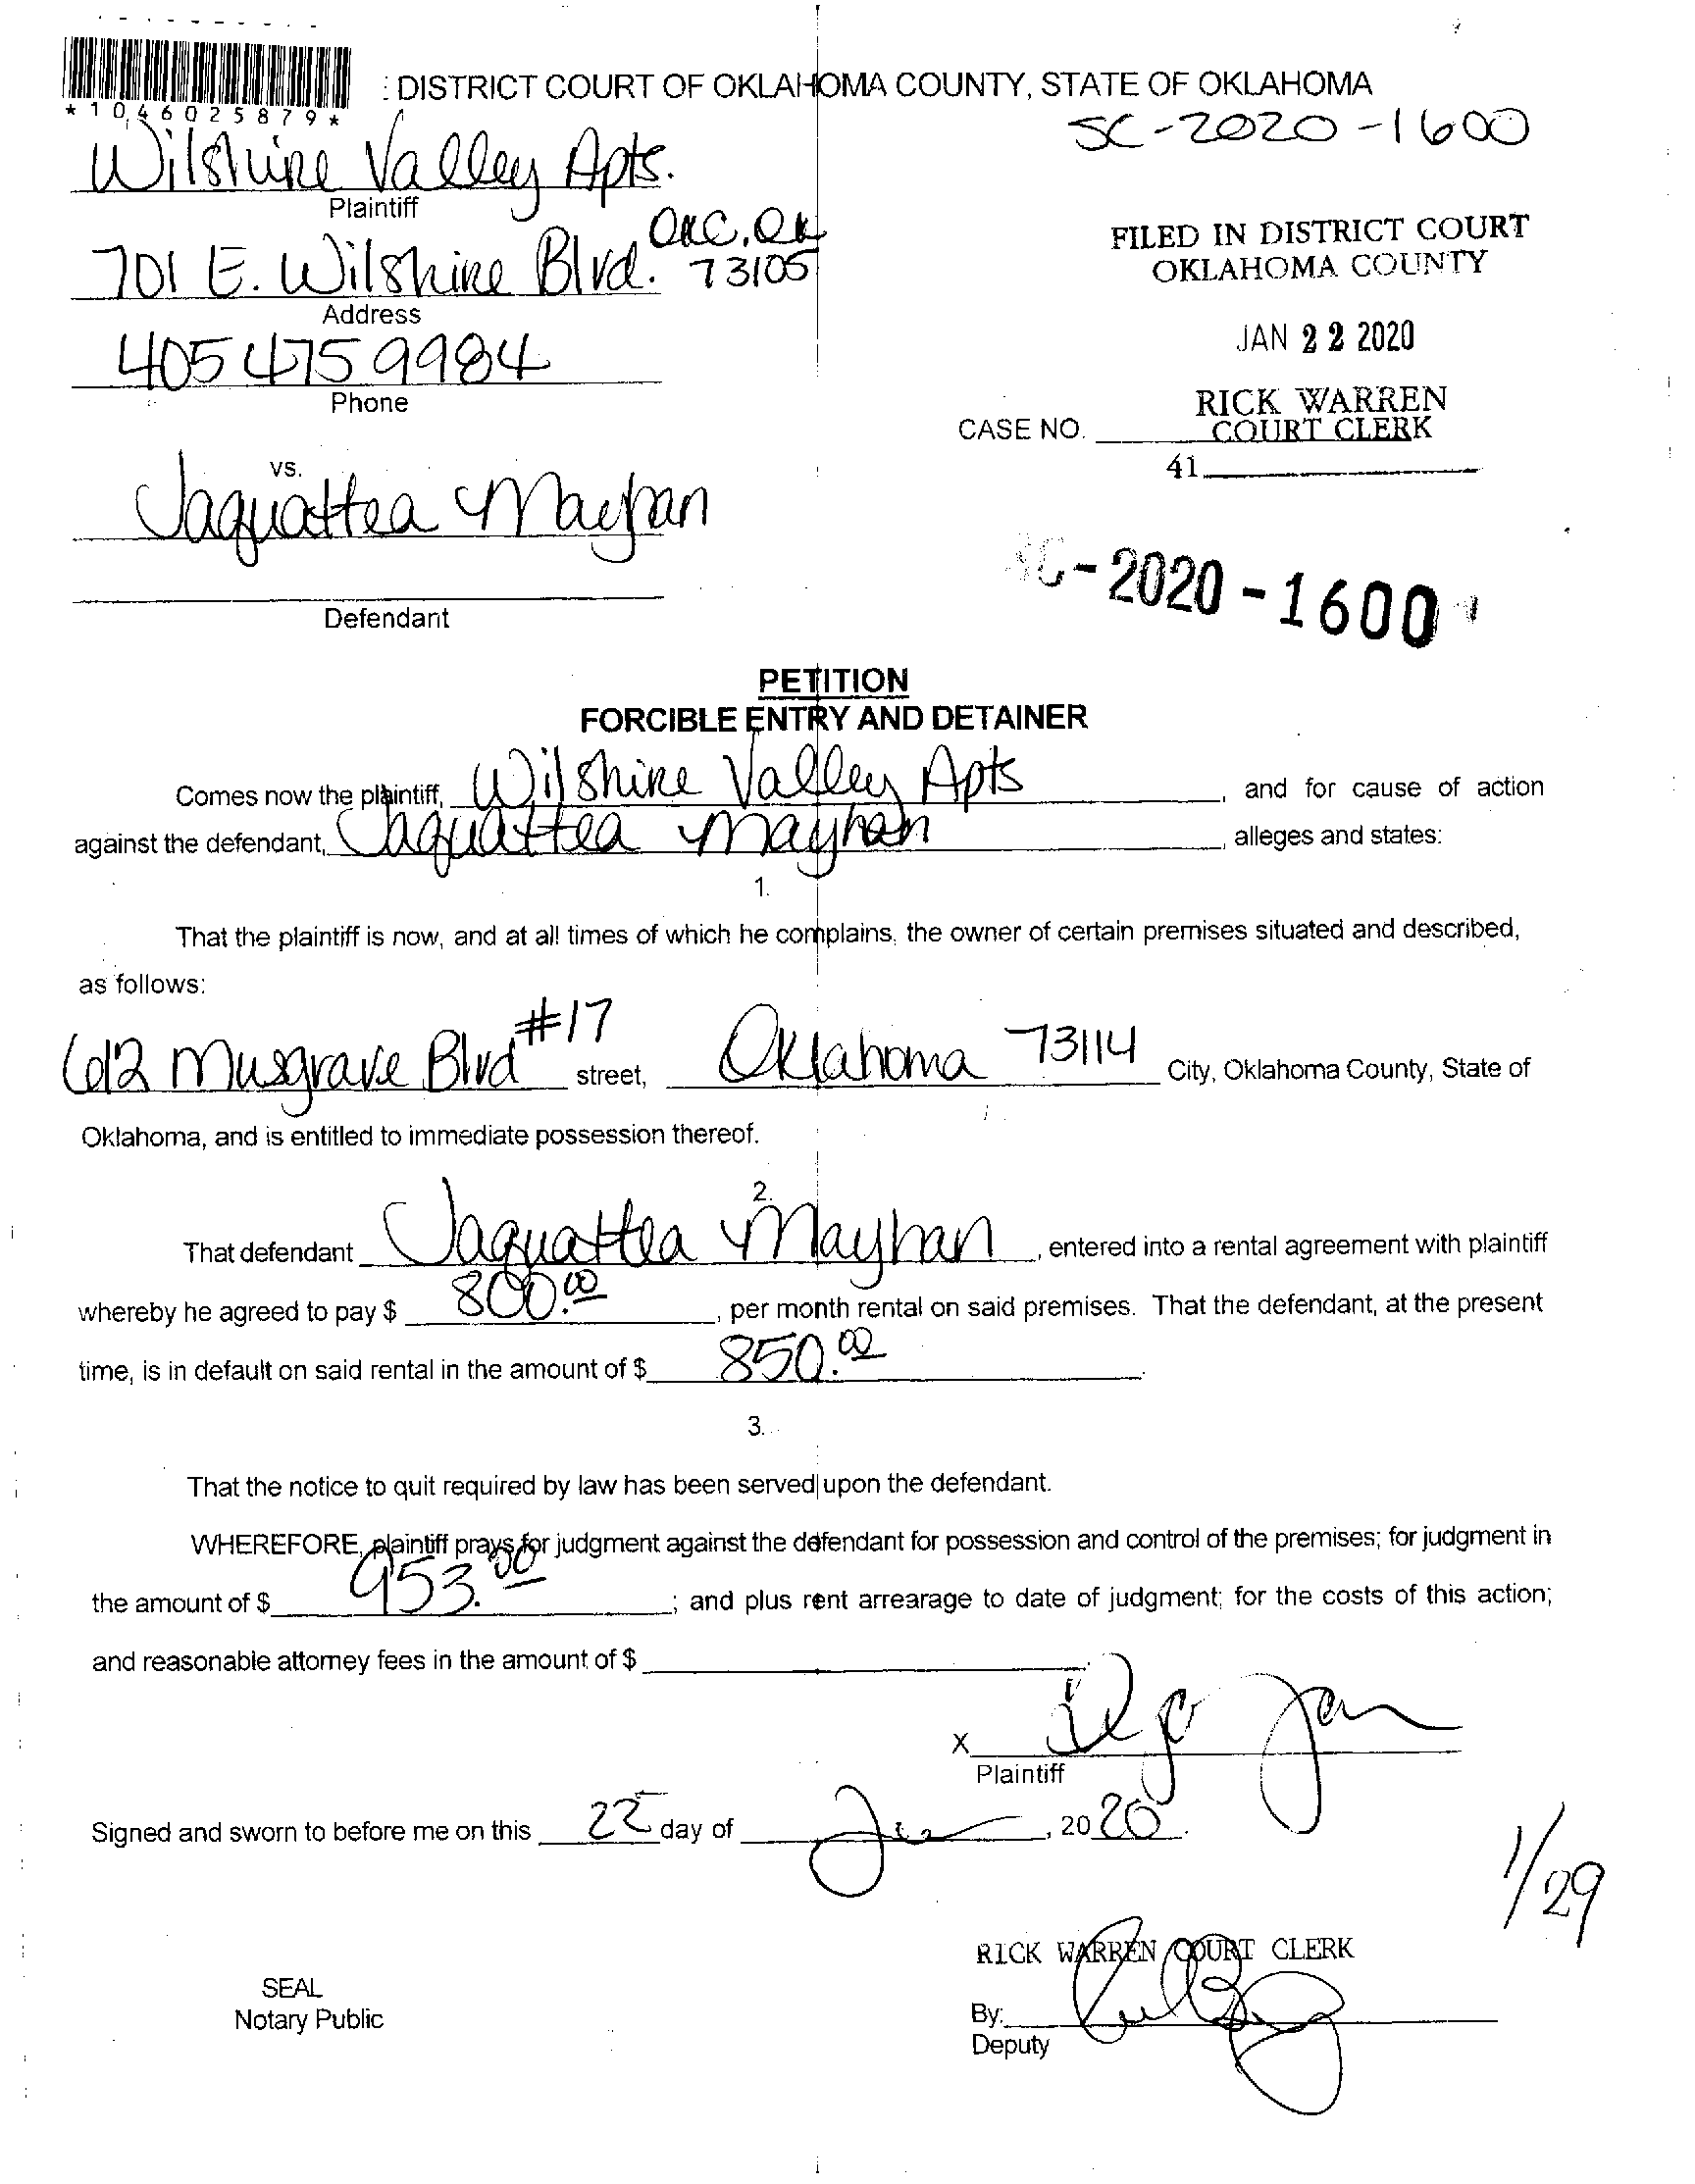 *1046025879*
: DISTRICT COURT OF OKLAHOMA COUNTY, STATE OF OKLAHOMA
SC-2020-1600
Wilshire Valley Apts.
Plaintiff
701 E. Wilshire Blvd. OKC, OK 73105
Address
405 475 9984
Phone
FILED IN DISTRICT COURT
OKLAHOMA COUNTY
JAN 22 2020
RICK WARREN
COURT CLERK
CASE NO.
41
vs.
Jaquattea Mayhan
Defendant
SC-2020-1600
PETITION
FORCIBLE ENTRY AND DETAINER
Comes now the plaintiff, Wilshire Valley Apts, and for cause of action
against the defendant, Jaquattea Mayhan, alleges and states:
1.
That the plaintiff is now, and at all times of which he complains, the owner of certain premises situated and described,
as follows:
612 Musgrave Blvd #17 street, Oklahoma 73114 City, Oklahoma County, State of
Oklahoma, and is entitled to immediate possession thereof.
2.
That defendant Jaquattea Mayhan, entered into a rental agreement with plaintiff
whereby he agreed to pay $ 800.00, per month rental on said premises. That the defendant, at the present
time, is in default on said rental in the amount of $ 850.00.
3.
That the notice to quit required by law has been served upon the defendant.
WHEREFORE, plaintiff prays for judgment against the defendant for possession and control of the premises; for judgment in
the amount of $ 953.00; and plus rent arrearage to date of judgment; for the costs of this action;
and reasonable attorney fees in the amount of $
X
Plaintiff
Signed and sworn to before me on this 22 day of Jan, 2020.
1/29
RICK WARREN COURT CLERK
SEAL
Notary Public
By:
Deputy